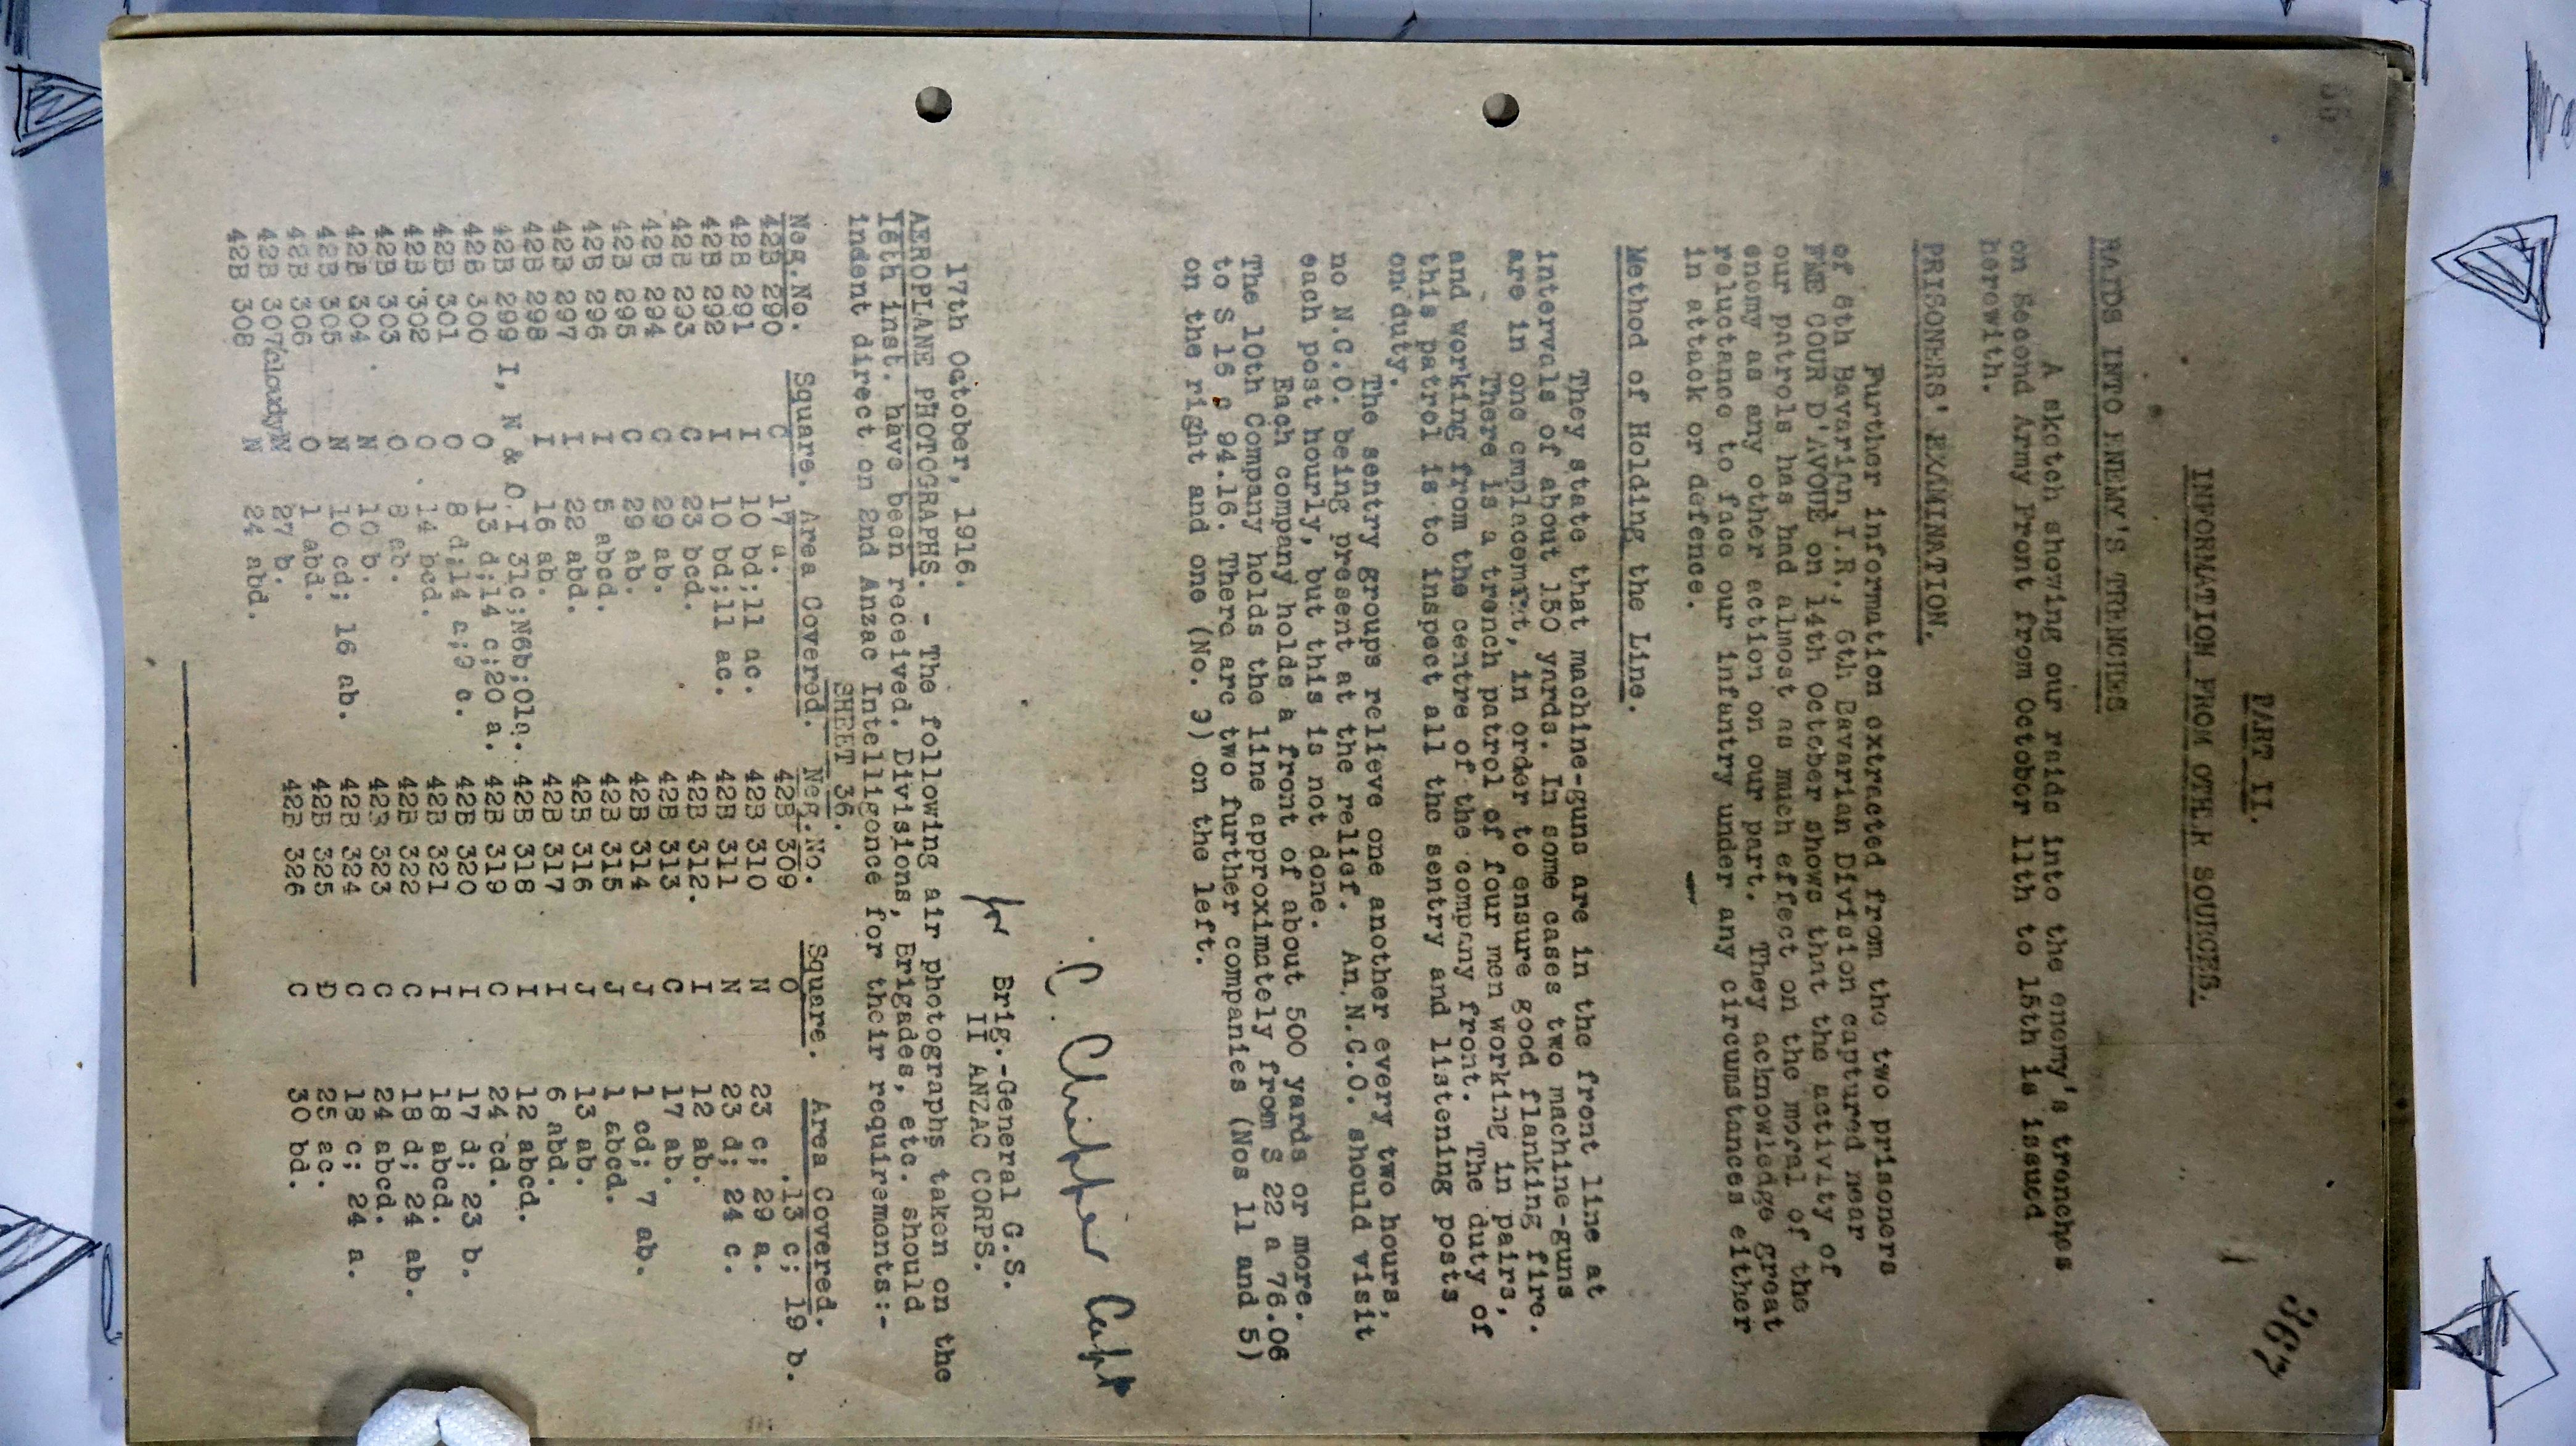 362
PART II.
INFORMATION FROM OTHER SOURCES.
RAIDS INTO ENEMY'S TRENCHES
A sketch showing our raids into the enemy's trenches
on Second Army Front from October 11th to 15th is issued
herewith.
PRISONERS' EXAMINATION.
Further information extracted from the two prisoners
of 8th Bavarian I.R., 6th Bavarian Division captured near
FME COUR D'AVOUE on 14th October shows that the activity of
our patrols has had almost as much effect on the moral of the
enemy as any other action on our part. They acknowledge great
reluctance to face our infantry under any circumstances either
in attack or defence.
Method of Holding the Line.
They state that machine-guns are in the front line at
intervals of about 150 yards. In some cases two machine-guns
are in one emplacement, in order to ensure good flanking fire.
There is a trench patrol of four men working in pairs,
and working from the centre of the company front. The duty of
this patrol is to inspect all the sentry and listening posts
on duty.
The sentry groups relieve one another every two hours,
no N.C.O. being present at the relief. An N.C.O. should visit
each post hourly, but this is not done.
Each company holds a front of about 500 yards or more.
The 10th Company holds the line approximately from S 22 a 76.06
to S 16 c 94.16. There are two further companies (Nos 11 and 5)
on the right and one (No. 9) on the left.
C. Capt
for Brig.-General G.S.
II ANZAC CORPS.
17th October, 1916.
AEROPLANE PHOTOGRAPHS. - The following air photographs taken on the
16th inst. have been received. Divisions, Brigades, etc. should
indent direct on 2nd Anzac Intelligence for their requirements:-
SHEET 36.
Neg.No. Square. Area Covered. Neg.No. Square. Area Covered.
42B 290 C 17 a. 42B 309 O 13 c; 19 b.
42B 291 I 10 bd;11 ac. 42B 310 N 23 c; 29 a.
42B 292 I 10 bd;11 ac. 42B 311 N 23 d; 24 c.
42B 293 C 23 bcd. 42B 312. I 12 ab.
42B 294 C 29 ab. 42B 313 C 17 ab.
42B 295 C 29 ab. 42B 314 J 1 cd; 7 ab.
42B 296 I 5 abcd. 42B 315 J 1 abcd.
42B 297 I 22 abd. 42B 316 J 13 ab.
42B 298 I 16 ab. 42B 317 I 6 abd.
42B 299 I, N & O. I 31c;N6b;O1a. 42B 318 I 12 abcd.
42B 300 O 13 d;14 c;20 a. 42B 319 C 24 cd.
42B 301 O 8 d;14 a;9 c. 42B 320 I 17 d; 23 b.
42B 302 C 14 bcd. 42B 321 I 18 abcd.
42B 303 O 2 ab. 42B 322 C 18 d; 24 ab.
42B 304 N 10 b. 42B 323 C 24 abcd.
42B 305 N 10 cd; 16 ab. 42B 324 C 18 c; 24 a.
42B 306 O 1 abd. 42B 325 D 25 ac.
42B 307 (cloudy) N 27 b. 42B 326 C 30 bd.
42B 308 N 24 abd.